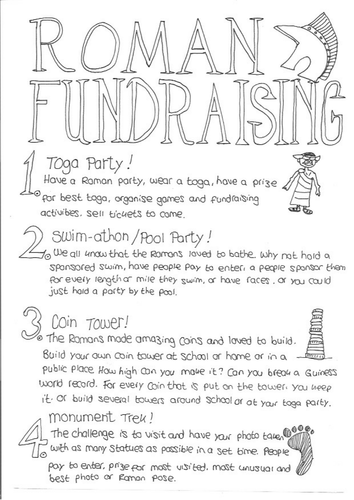 ROMAN
FUNDRAISING
1. Toga Party!
Have a Roman party, wear a toga, have a prize
for best toga, organise games and fundraising
activities. Sell tickets to come.
2. Swim-athon/Pool Party!
We all know that the Romans loved to bathe. Why not hold a
sponsored swim, have people pay to enter, & people sponsor them
for every length or mile they swim, or have races. or you could
just hold a party by the pool.
3. Coin Tower!
The Romans made amazing coins and loved to build.
Build your own coin tower at school or home or in a
public place. How high can you make it? Can you break a Guiness
world record. For every coin that is put on the tower, you keep
it. or build several towers around school or at your toga party.
4. monument Trek!
The challenge is to visit and have your photo taken
with as many Statues as possible in a set time. People
pay to enter, prize for most visited, most unusual and
best photo or Roman Pose.